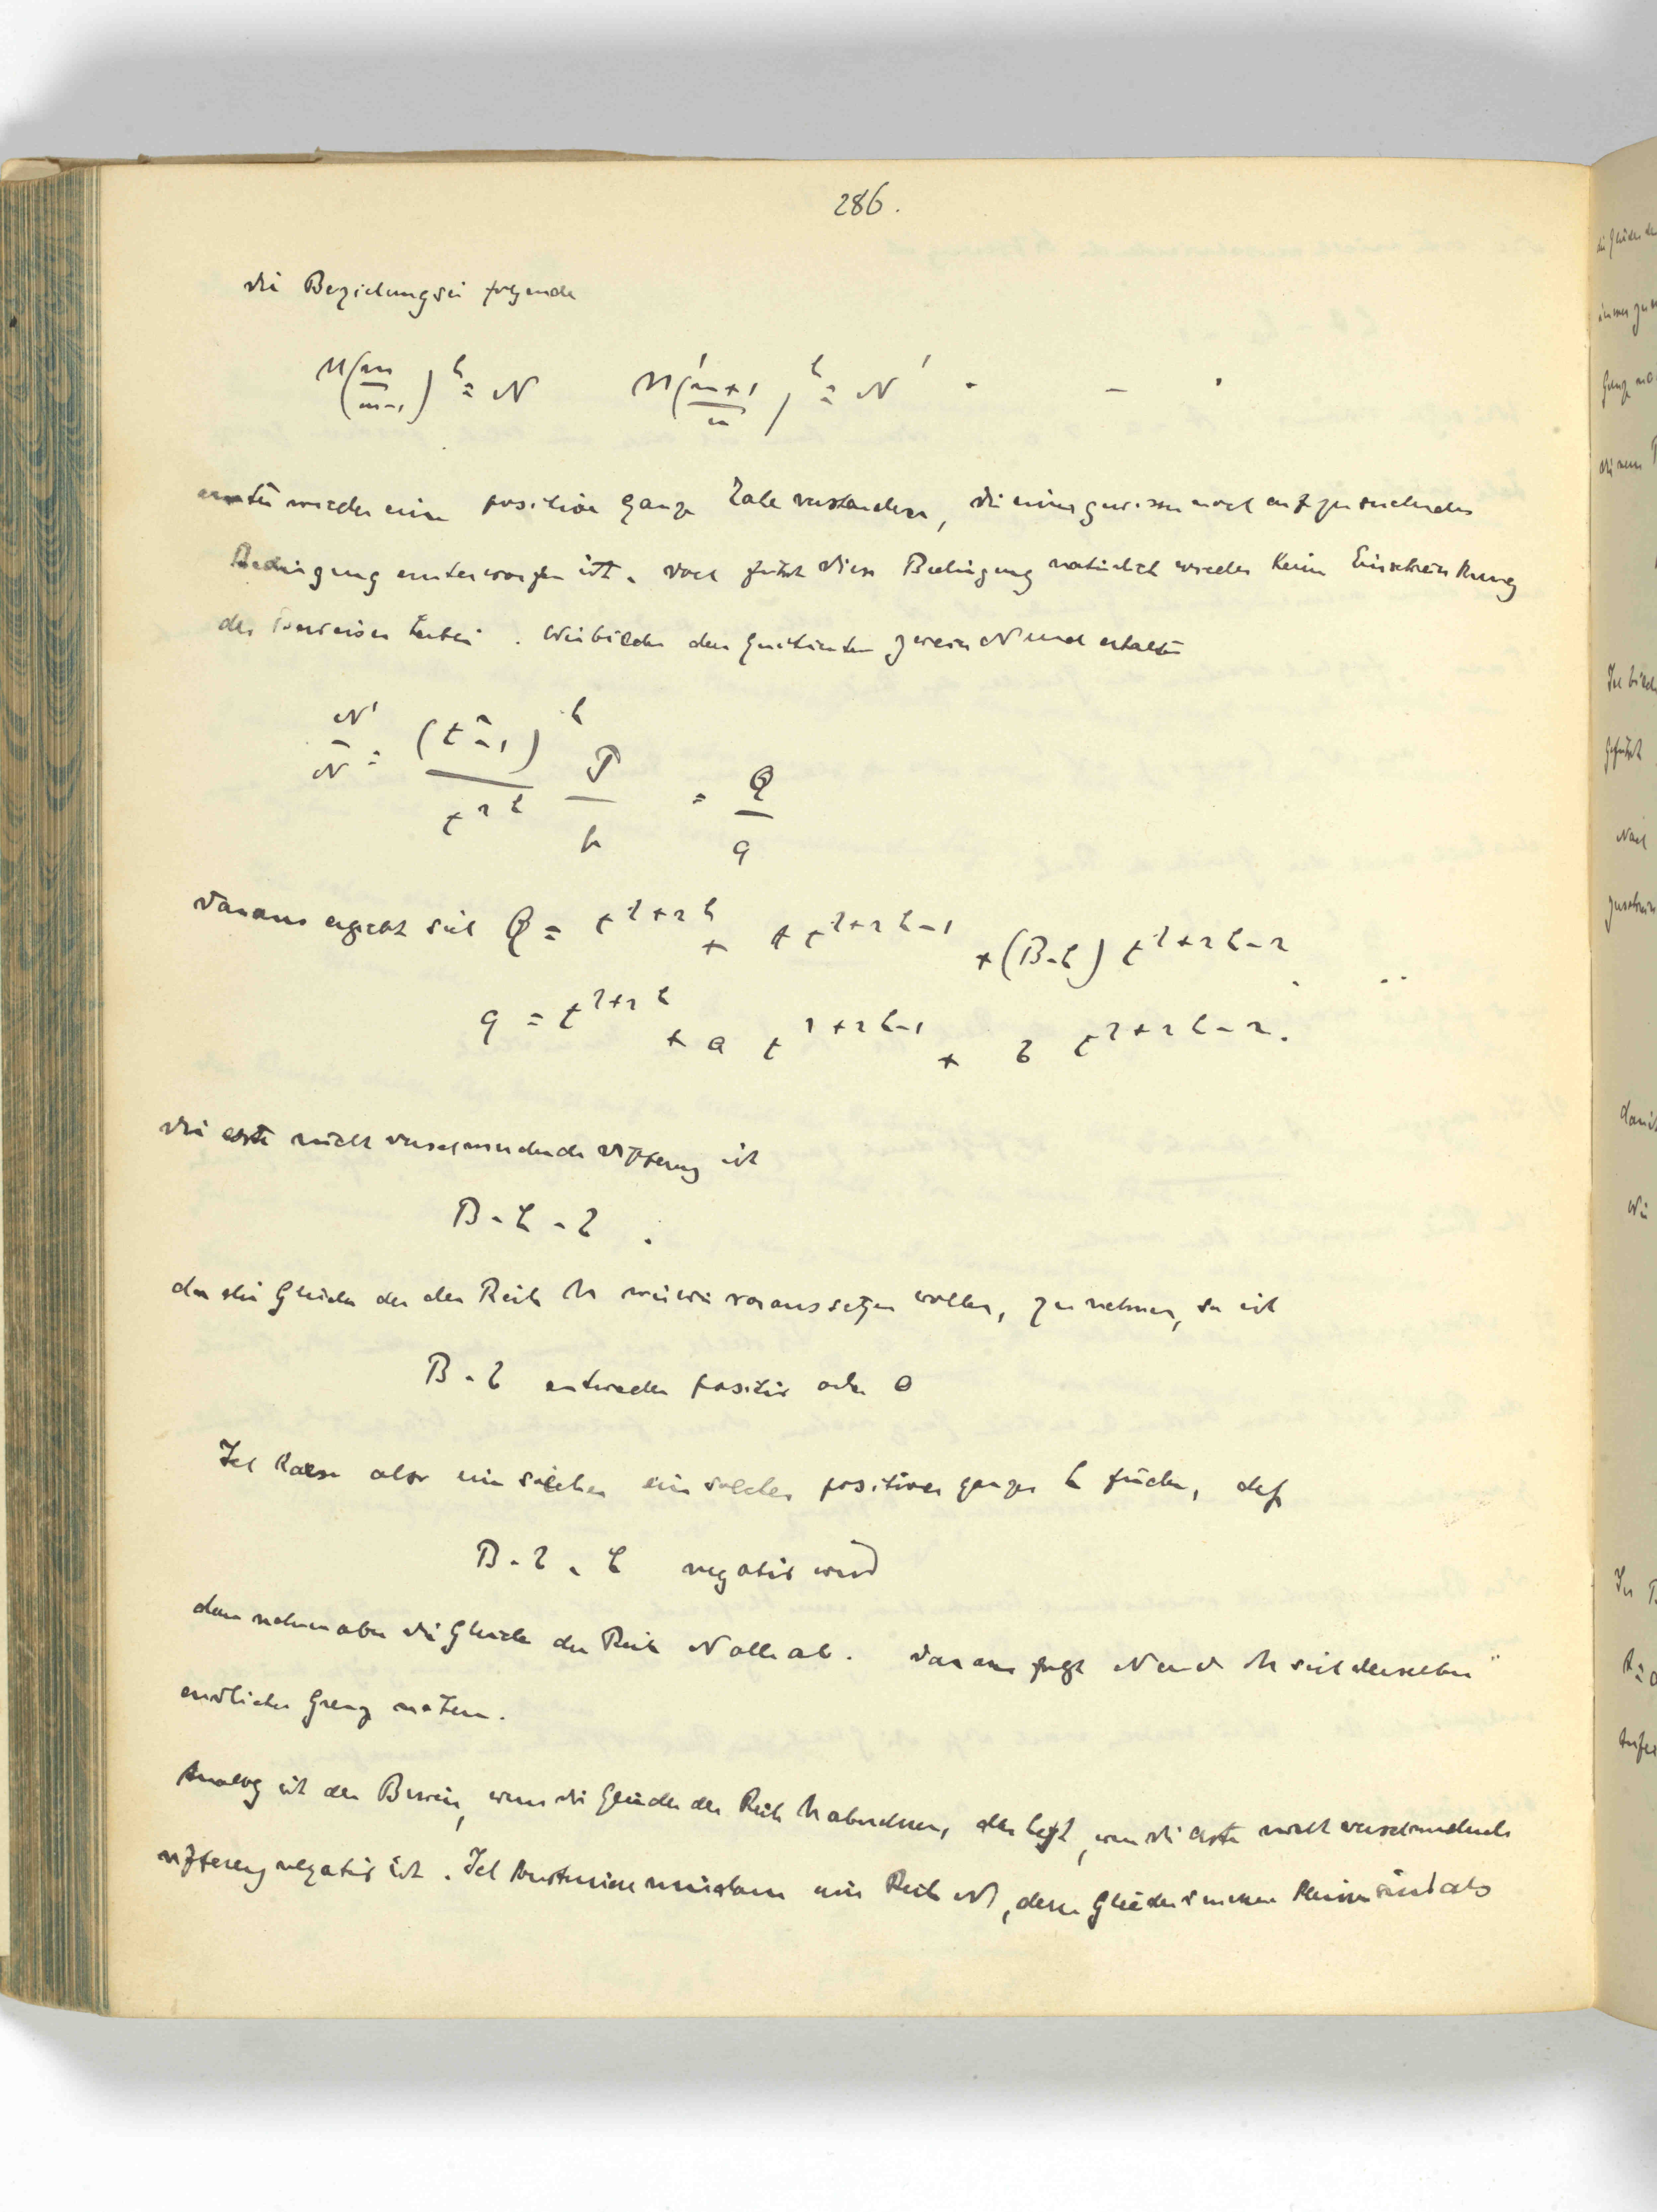 286.
die Beziehung sei folgende
M(m/m-1)^h = N M'(m+1/m)^h = N' . - .
wieder eine positive ganze Zahl verstanden, die einer gewissen noch aufzusuchenden
Bedingung unterworfen ist. doch führt diese Bedingung natürlich wieder keine Einschränkung
des Beweises herbei. Wir bilden den Quotienten zweier N und erhalten
N'/N = (t²-1)^h / t^2h P/p = Q/q
daraus ergiebt sich Q = t^λ+2h + A t^λ+2h-1 + (B-h) t^λ+2h-2 . ..
q = t^λ+2h + a t^λ+2h-1 + b t^λ+2h-2.
die erste nicht verschwindende Differenz ist
B-h-b .
da die Glieder der der Reihe M wie wir voraussetzen wollen, zunehmen, so ist
B-b entweder positiv oder 0
Ich kann aber ein solches ein solches positives ganzes h finden, daß
B-b-h negativ wird
dann nehmen aber die Glieder der Reihe N alle ab. daraus folgt N und M sich derselben
endlichen Grenze nähern.
Analog ist der Beweis, wenn die Glieder der Reihe M abnehmen, das heißt, wenn die erste nicht verschwindende
Differenz negativ ist. Ich konstruiere eine Reihe N, deren Glieder immer kleiner sind als